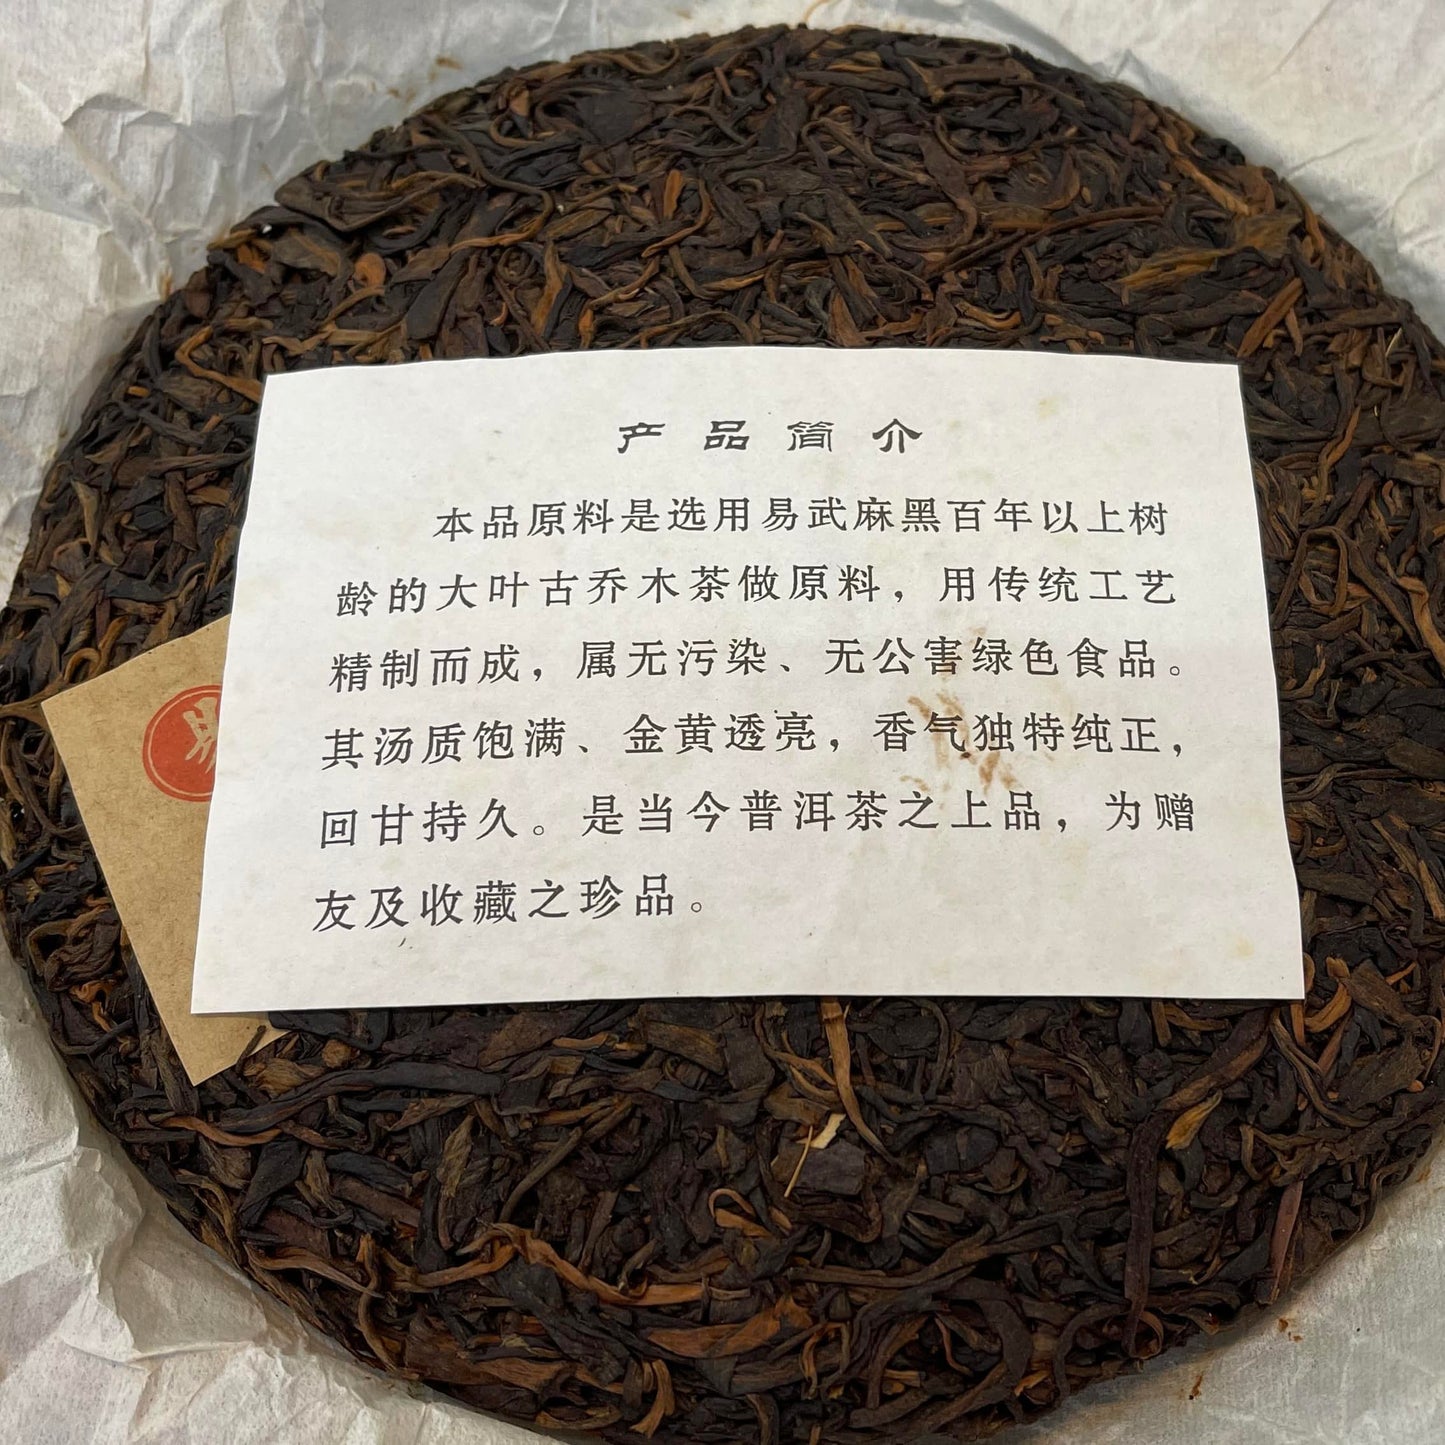 产品简介
本品原料是选用易武麻黑百年以上树
龄的大叶古乔木茶做原料，用传统工艺
精制而成，属无污染、无公害绿色食品。
其汤质饱满、金黄透亮，香气独特纯正，
回甘持久。是当今普洱茶之上品，为赠
友及收藏之珍品。